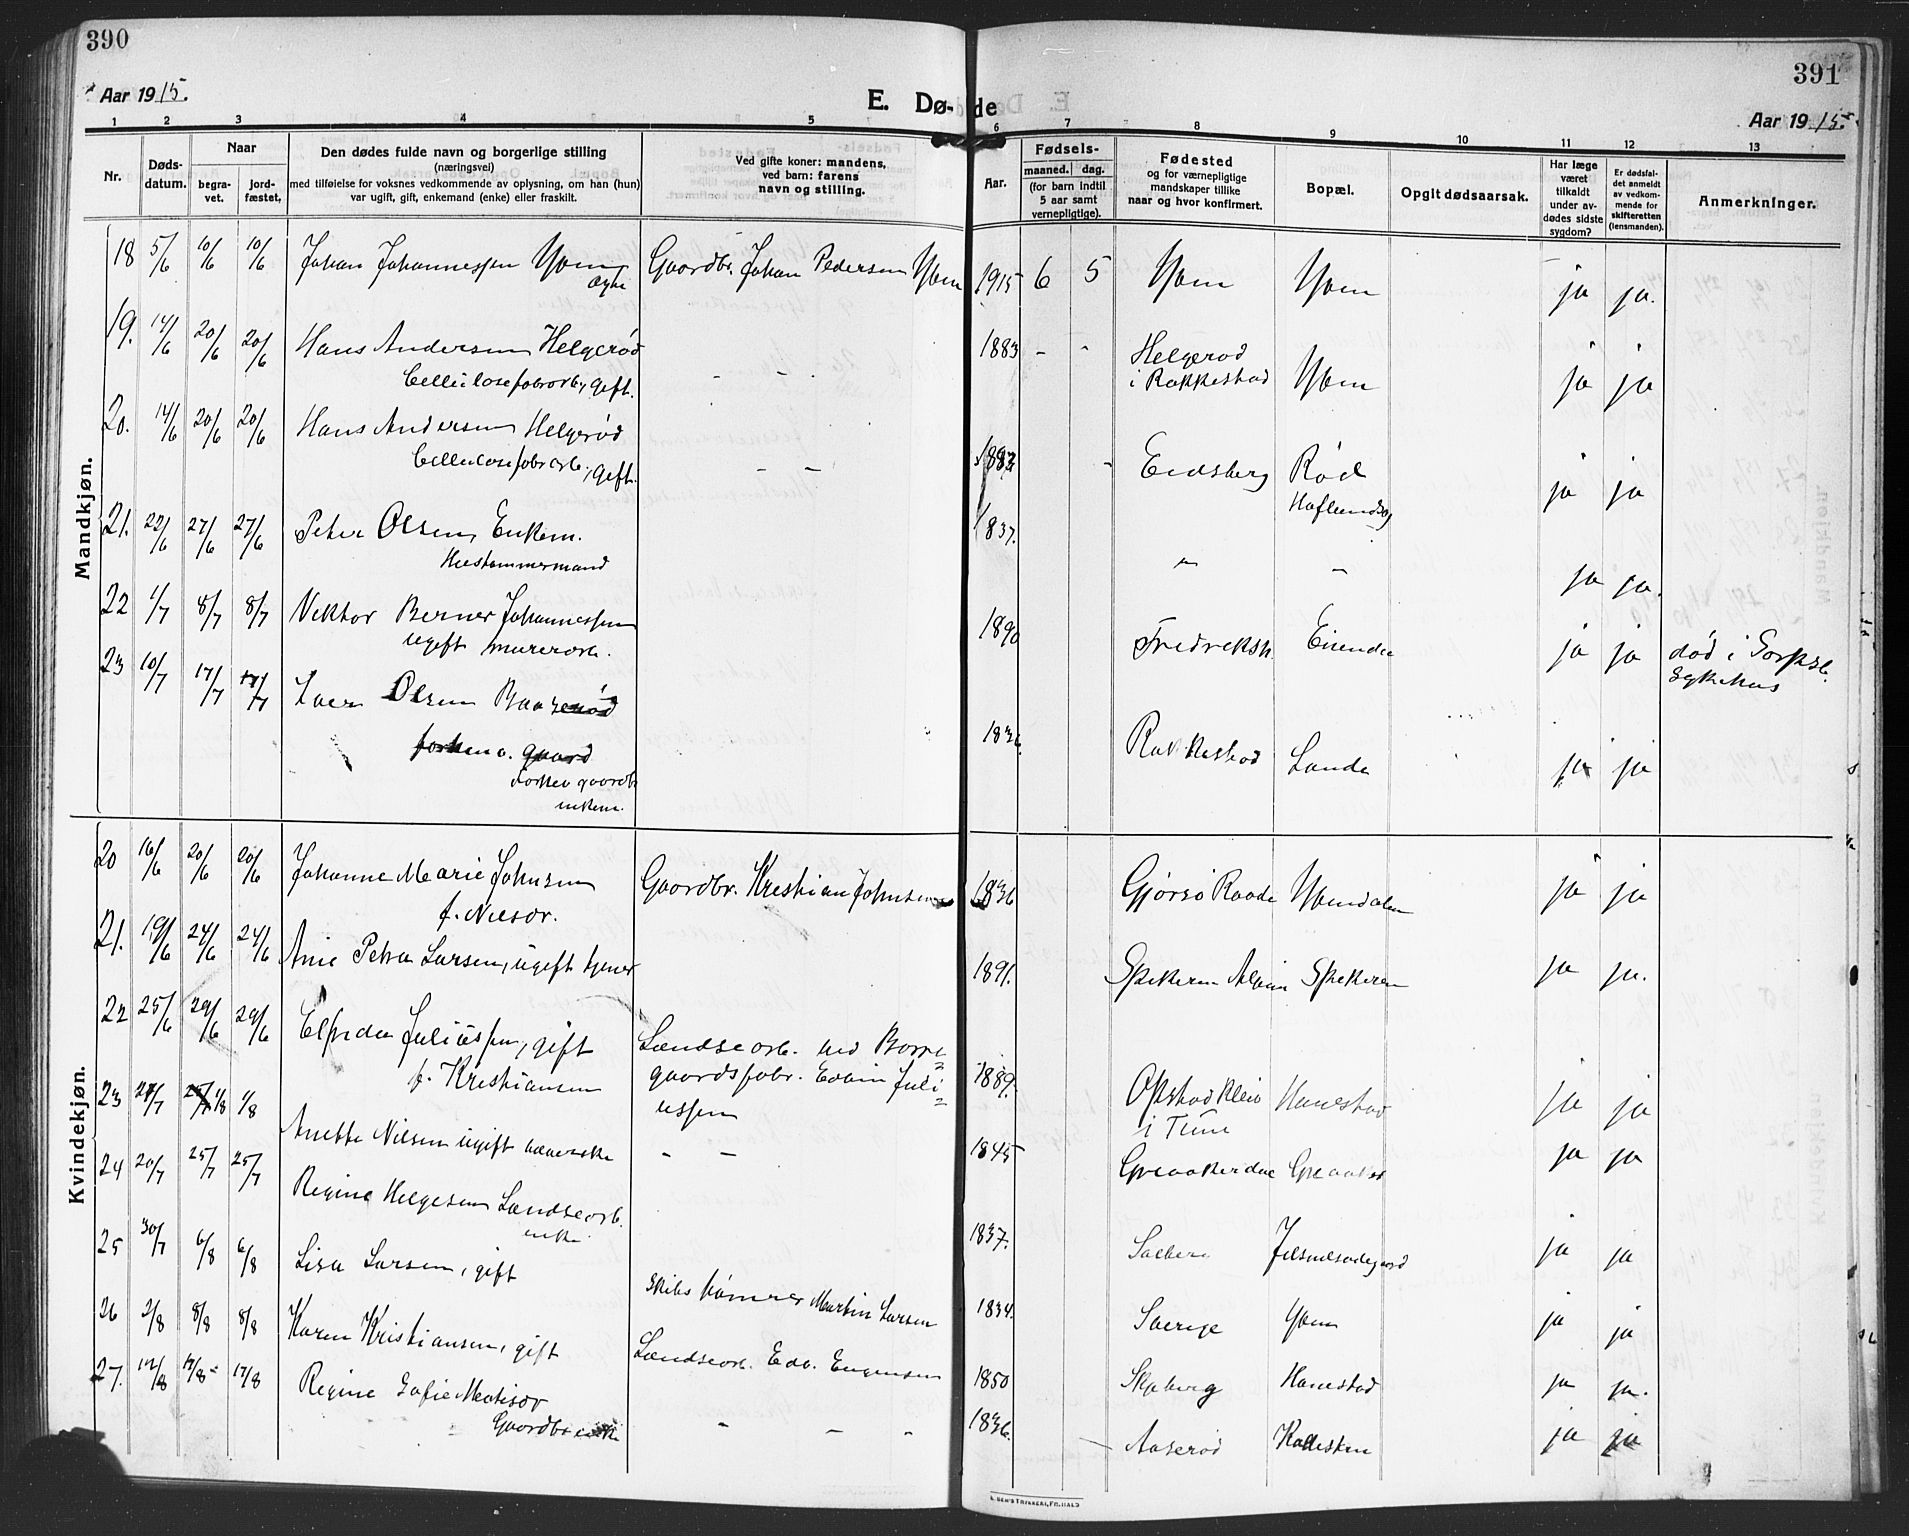 390
Aar 1915.
E. Dø-de
391
Aar 1915.
1 2 3 4 5 6 7 8 9 10 11 12 13
Nr.
Døds-datum.
Naar
begra-vet.
jord-fæstet,
Den dødes fulde navn og borgerlige stilling
(næringsvei)
med tilføielse for voksnes vedkommende av oplysning, om han (hun)
var ugift, gift, enkemand (enke) eller fraskilt.
Ved gifte koner: mandens,
ved barn: farens
navn og stilling.
Aar.
Fødsels-
maaned. dag.
(for barn indtil
5 aar samt
vernepligtige).
Fødested
og for værnepligtige
mandskaper tillike
naar og hvor konfirmert.
Bopæl.
Opgit dødsaarsak.
Har læge
været
tilkaldt
under av-
dødes sidste
sygdom?
Er dødsfal-
det anmeldt
av vedkom-
mende for
skifteretten
(lensmanden).
Anmerkninger.
Mandkjøn.
18 5/6 10/6 10/6 Johan Johannessen Yven Gaardbr. Johan Pedersen Yven 1915 6 5 Yven Yven ja ja.
19. 14/6 20/6 20/6 Hans Andersen Helgerød 1883 - - Helgerød
Cellulosefabrarb, gift. - - i Rakkestad Yven ja ja
20. 14/6 20/6 20/6 Hans Andersen Helgerød
Cellulosefabrarb., gift. - - Eidsberg Rød ja ja
Haflundsøy
21. 22/6 27/6 27/6 Peter Olsen, Enkem. 1837. " - ja ja.
Hustømmermand
22 1/7 8/7 8/7 Viktor Berner Johannessen 1890 Fredriksh. ja ja død i Sarpsb.
ugift murerarb. Sykehus
23 10/7 17/7 17/7 Lars Olsen 1836. Rakkestad Lande ja ja
forhen v. gaard
Forhen gaardbr
enkem.
Kvindekjøn.
20 16/6 20/6 20/6 Johanne Marie Johnsen Gaardbr. Kristian Johnsen 1836 Gjørsø Raade Yvendalen ja ja
f. Nilsdr.
21. 19/6 24/6 24/6 Anne Petra Larsen, ugift tjener 1891. Spekeren Spekeren ja ja.
22 25/6 29/6 29/6 Elfrida Juliussen, gift Landsearb. ved Borre=
f. Kristiansen gaardsfabr. Edvin Juli= 1889. Opstad
ussen i Tune Hanestad ja ja
23 1/8 1/8 Anette Nilsen ugift væverske - - 1845 Greaaker ja ja
24 20/7 25/7 25/7 Regine Helgesen Landsearb. 1837. ja ja
enke.
25 30/7 6/8 6/8 Lisa Larsen, gift Skibstømrer Martin Larsen 1834. Sverige Yven ja ja
26 2/8 8/8 8/8 Karen Kristiansen, gift Landsearb. Edv. Eugensen 1850 Skjeberg Hanestad ja ja.
27. 12/8 17/8 17/8 Regine Sofie Matisdr - - - 1836. Aaserød ja ja
Gaardbr enke